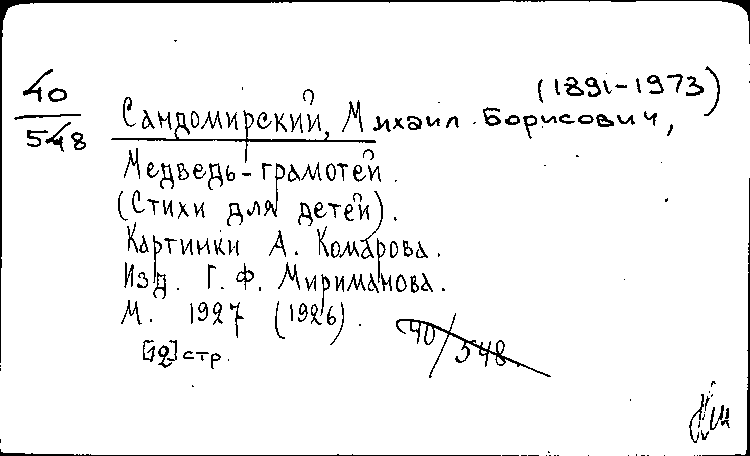 40
548
(1891-1973)
Сандомирский, Михаил Борисович,
Медведь-грамотей.
(Стихи для детей).
Картинки А. Комарова.
Изд. Г. Ф. Мириманова.
М. 1927 (1926).
40/548.
[12] стр.